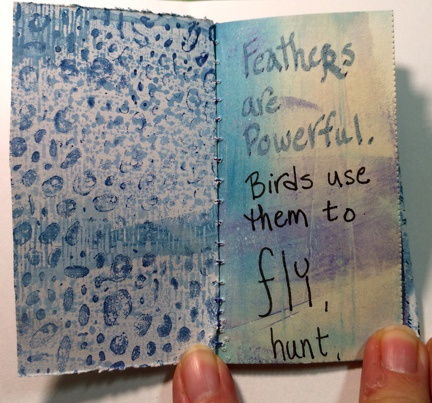 Feathers
are
Powerful.
Birds use
them to
fly,
hunt,